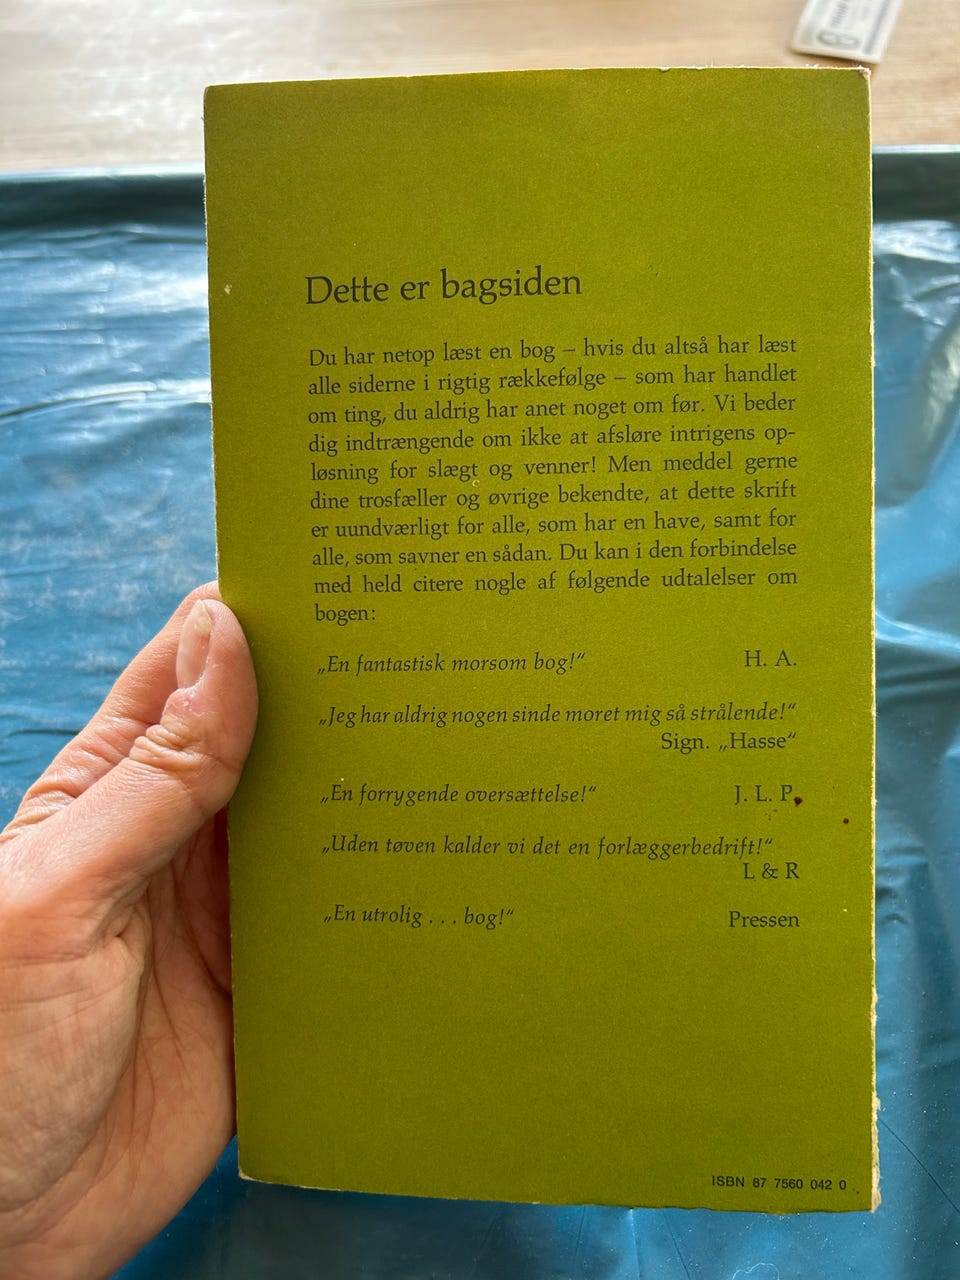 Dette er bagsiden
Du har netop læst en bog – hvis du altså har læst
alle siderne i rigtig rækkefølge – som har handlet
om ting, du aldrig har anet noget om før. Vi beder
dig indtrængende om ikke at afsløre intrigens op-
løsning for slægt og venner! Men meddel gerne
dine trosfæller og øvrige bekendte, at dette skrift
er uundværligt for alle, som har en have, samt for
alle, som savner en sådan. Du kan i den forbindelse
med held citere nogle af følgende udtalelser om
bogen:
„En fantastisk morsom bog!“ H. A.
„Jeg har aldrig nogen sinde moret mig så strålende!“
Sign. „Hasse“
„En forrygende oversættelse!“ J. L. P.
„Uden tøven kalder vi det en forlæggerbedrift!“
L & R
„En utrolig . . . bog!“ Pressen
ISBN 87 7560 042 0